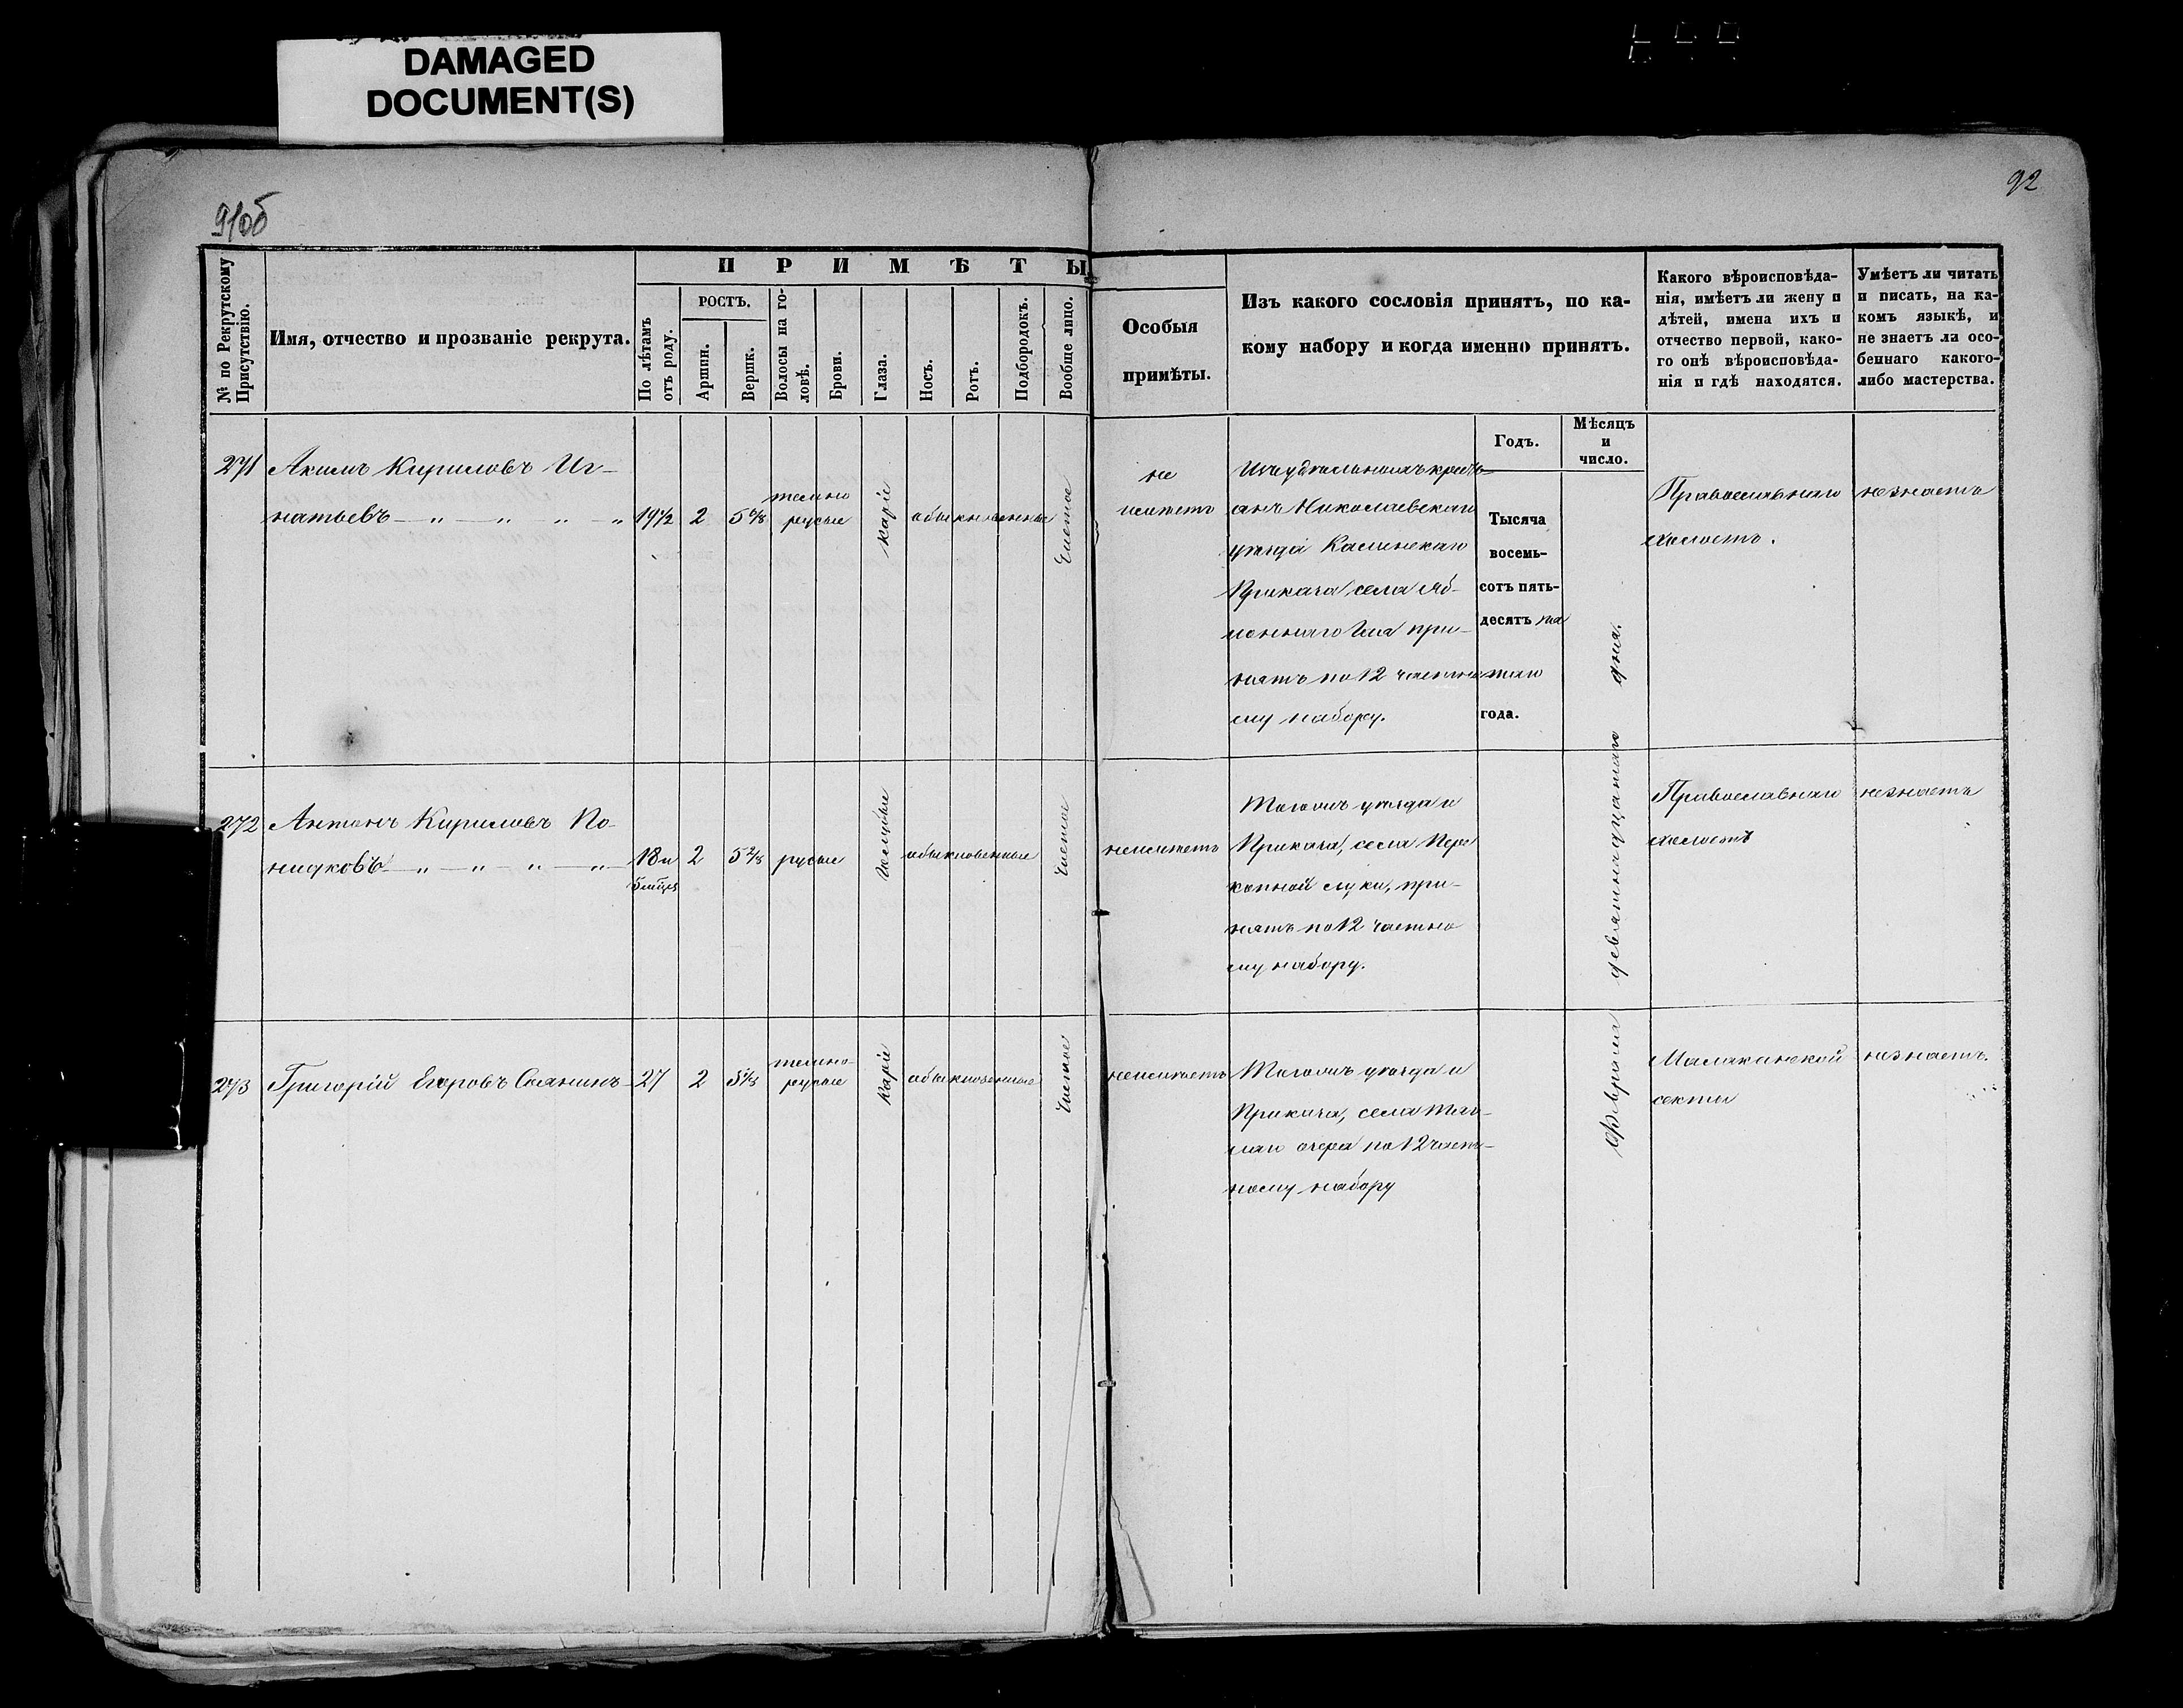 DAMAGED
DOCUMENT(S)
91об
92
№ по Рекрутскому Присутствію.
Имя, отчество и прозваніе рекрута.
ПРИМѢТЫ
По лѣтамъ отъ роду.
РОСТЪ.
Аршин.
Вершк.
Волосы на головѣ.
Брови.
Глаза.
Носъ.
Ротъ.
Подбородокъ.
Вообще лицо.
Особыя
примѣты.
Изъ какого сословія принятъ, по ка-
кому набору и когда именно принятъ.
Какого вѣроисповѣда-
нія, имѣетъ ли жену и
дѣтей, имена ихъ и
отчество первой, како-
го онѣ вѣроисповѣда-
нія и гдѣ находятся.
Умѣетъ ли читать
и писать, на ка-
комъ языкѣ, и
не знаетъ ли осо-
беннаго какого-
либо мастерства.
Годъ.
Мѣсяцъ
и
число.
271
Акимъ Кириловъ Иг-
натьевъ — „ — „ — „ — „
19½ 2 5 6/8
темно
русые
Каріе
обыкновенные
Чистое
не
имѣетъ
Изъ удѣльныхъ кресть-
янъ Николаевскаго
уѣзда
Приказа, села Яб-
при-
нятъ по 12 частно
му набору.
Тысяча
восемь-
сотъ пять-
десятъ пя
таго
года.
Февраля девятнадцатаго дня.
Православнаго
холостъ.
незнаетъ
272
Антонъ Кириловъ По-
— „ — „ — „ — „
18 и 2 5 2/8 русые
5 мѣся
Голубые
обыкновенные
Чистое
неимѣетъ
Тогожъ уѣзда и
Приказа, села Пере
копной луки, при-
нятъ по 12 частно
му набору.
Православнаго
холостъ
незнаетъ
273
Григорій Егоровъ
27 2 5 1/8
темно-
русые
Каріе
обыкновенные
Чистое
неимѣетъ
Тогожъ уѣзда и
Приказа, села Тяг-
лаго озера по 12 част-
ному набору
Малаканской
секты
незнаетъ.